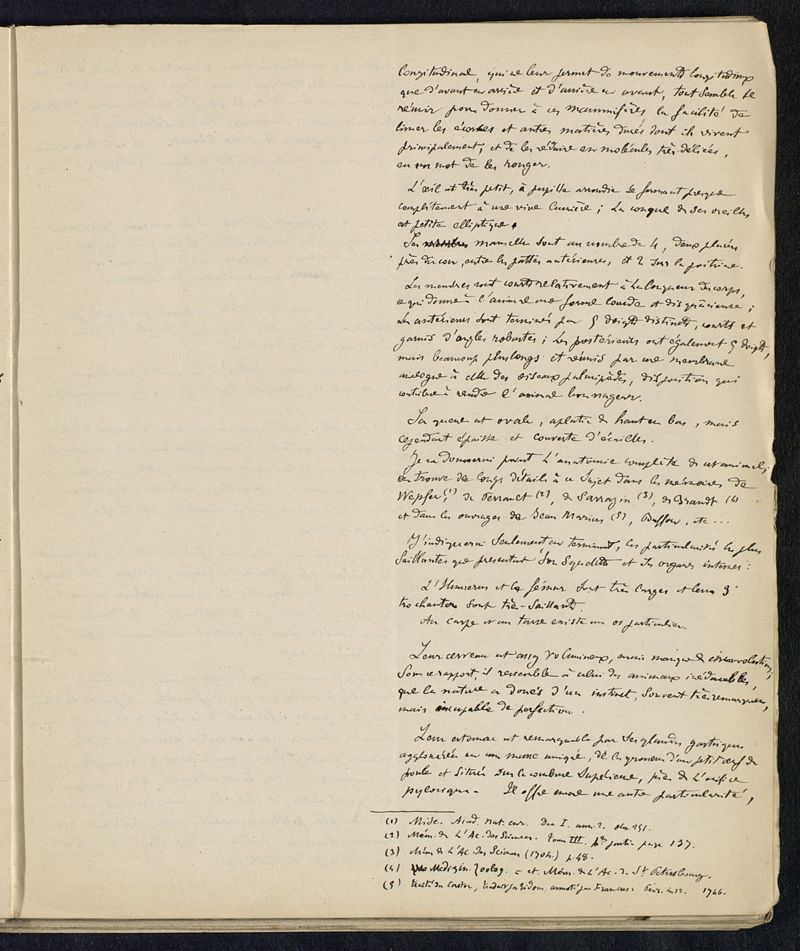 longitudinal, qui ne leur permet de mouvements longitudinaux
que d'avant en arrière et d'arrière en avant, tout semble se
réunir pour donner à ces mammifères la facilité de
limer les écorces et autres matières dures dont ils vivent
principalement, et de les réduire en molécules très délicées,
en un mot de les ronger.
L'œil est très petit, à pupille arrondie se fermant presque
complètement à une vive lumière ; la conque de ses oreilles
est petite elliptique.
Ses mamelle sont au nombre de 4, deux placées
près du cou, entre les pattes antérieures, et 2 sur la poitrine.
Les membres sont courts relativement à la longueur du corps,
ce qui donne à l'animal une forme lourde et disgracieuse ;
les antérieurs sont terminés par 5 doigts distincts, courts et
garnis d'ongles robustes ; les postérieurs ont également 5 doigts,
mais beaucoup plus longs et réunis par une membrane
analogue à celle des oiseaux palmipèdes, disposition qui
contribue à rendre l'animal bon nageur.
Sa queue est ovale, aplatie de haut en bas, mais
cependant épaisse et couverte d'écailles.
Je ne donnerai point l'anatomie complète de cet animal ;
on trouve de longs détails à ce sujet dans les mémoires de
Wepfer (1) de Perrault (2), de Sarrazin (3), de Brandt (4)
et dans les ouvrages de Jean Marius (5), Buffon, etc...
J'indiquerai seulement en terminant, les particularités les plus
saillantes que présentent son squelette et ses organes internes :
L'Humérus et le fémur sont très larges et leurs 3
trochanters sont très-saillants.
Au carpe et au tarse existe un os particulier.
Leur cerveau est assez volumineux, mais manque de circonvolutions ;
sous ce rapport, il ressemble à celui des animaux inéducables,
que la nature a doués d'un instinct, souvent très remarquable,
mais incapable de perfection.
Leur estomac est remarquable par ses glandes gastriques
agglomérées en une masse unique, de la grosseur d'un petit œuf de
poule et située sur la courbure supérieure, près de l'orifice
pylorique. Il offre encore une autre particularité,
(1) Misc. Acad. nat. cur. Dec I. ann. 2. obs. 251.
(2) Mém. de l'Ac. des Sciences. Tome III, partie page 137.
(3) Mém de l'Ac. des Sciences (1704) p. 48.
(4) Medizin. Zoolog. = et Mém. de l'Ac. de St Petersbourg.
(5) Traité du Castor, traduit par Eidous, annoté par Francus : Paris. in 12. 1746.